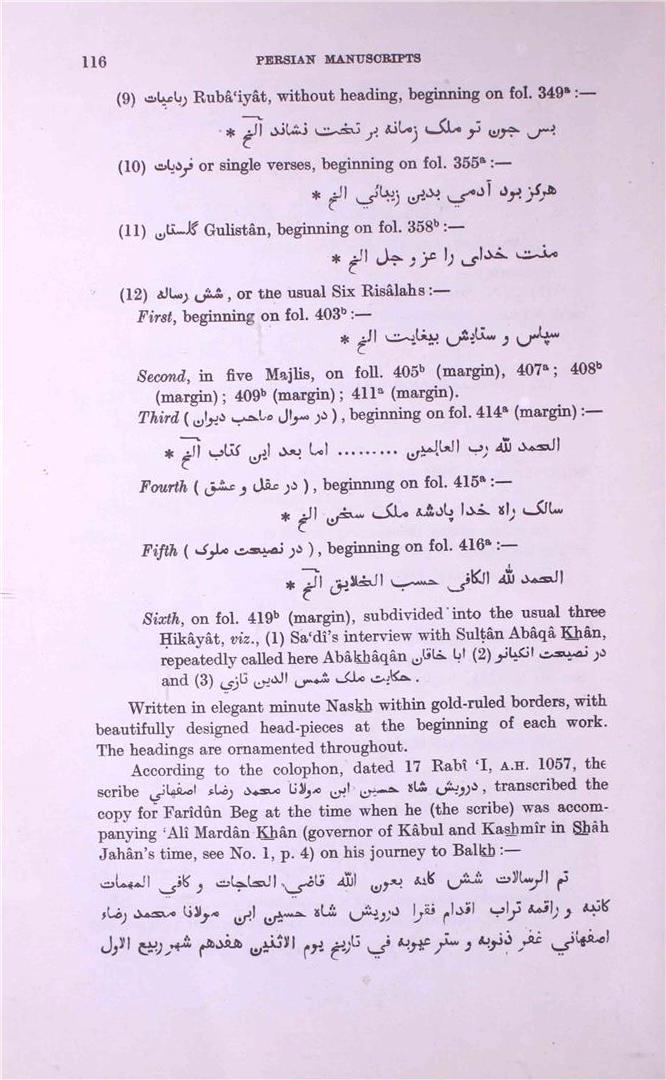 116 PERSIAN MANUSCRIPTS
(9) رباعیات Rubâ‘iyât, without heading, beginning on fol. 349ᵃ :—
بس جون تو ملک زمانه بر تخت نشاند آلخ *
(10) فردیات or single verses, beginning on fol. 355ᵃ :—
هرکز بود آدمي بدین زیبائي الخ *
(11) گلستان Gulistân, beginning on fol. 358ᵇ :—
منت خدای را عز و جل الخ *
(12) شش رساله , or the usual Six Risâlahs :—
First, beginning on fol. 403ᵇ :—
سپاس و ستایش بیغایت الخ *
Second, in five Majlis, on foll. 405ᵇ (margin), 407ᵃ ; 408ᵇ
(margin) ; 409ᵇ (margin) ; 411ᵃ (margin).
Third ( در سوال صاحب دیوان ), beginning on fol. 414ᵃ (margin) :—
الحمد لله رب العالمین ......... اما بعد این کتاب آلخ *
Fourth ( در عقل و عشق ), beginning on fol. 415ᵃ :—
سالک راه خدا پادشه ملک سخن الخ *
Fifth ( در نصیحت ملوک ), beginning on fol. 416ᵃ :—
الحمد لله الکافی حسب الخلایق آلخ *
Sixth, on fol. 419ᵇ (margin), subdivided into the usual three
Ḥikâyât, viz., (1) Sa‘dî’s interview with Sulṭân Abâqâ Khân,
repeatedly called here Abâkhâqân ابا خاقان (2) در نصیحت انکیانو
and (3) حکایت ملک شمس الدین تازي .
Written in elegant minute Naskh within gold-ruled borders, with
beautifully designed head-pieces at the beginning of each work.
The headings are ornamented throughout.
According to the colophon, dated 17 Rabî ‘I, A.H. 1057, the
scribe درویش شاه حسین ابن مولانا محمد رضاء اصفهاني , transcribed the
copy for Farîdûn Beg at the time when he (the scribe) was accom-
panying ‘Alî Mardân Khân (governor of Kâbul and Kashmîr in Shâh
Jahân’s time, see No. 1, p. 4) on his journey to Balkh :—
تم الرسالات شش کانه بعون الله قاضي الحاجات و کافي المهمات
کاتبه و راقمه تراب اقدام فقرا درویش شاه حسین ابن مولانا محمد رضاء
اصفهاني غفر ذنوبه و ستر عیوبه في تاریخ یوم الاثنین هفدهم شهر ربیع الاول